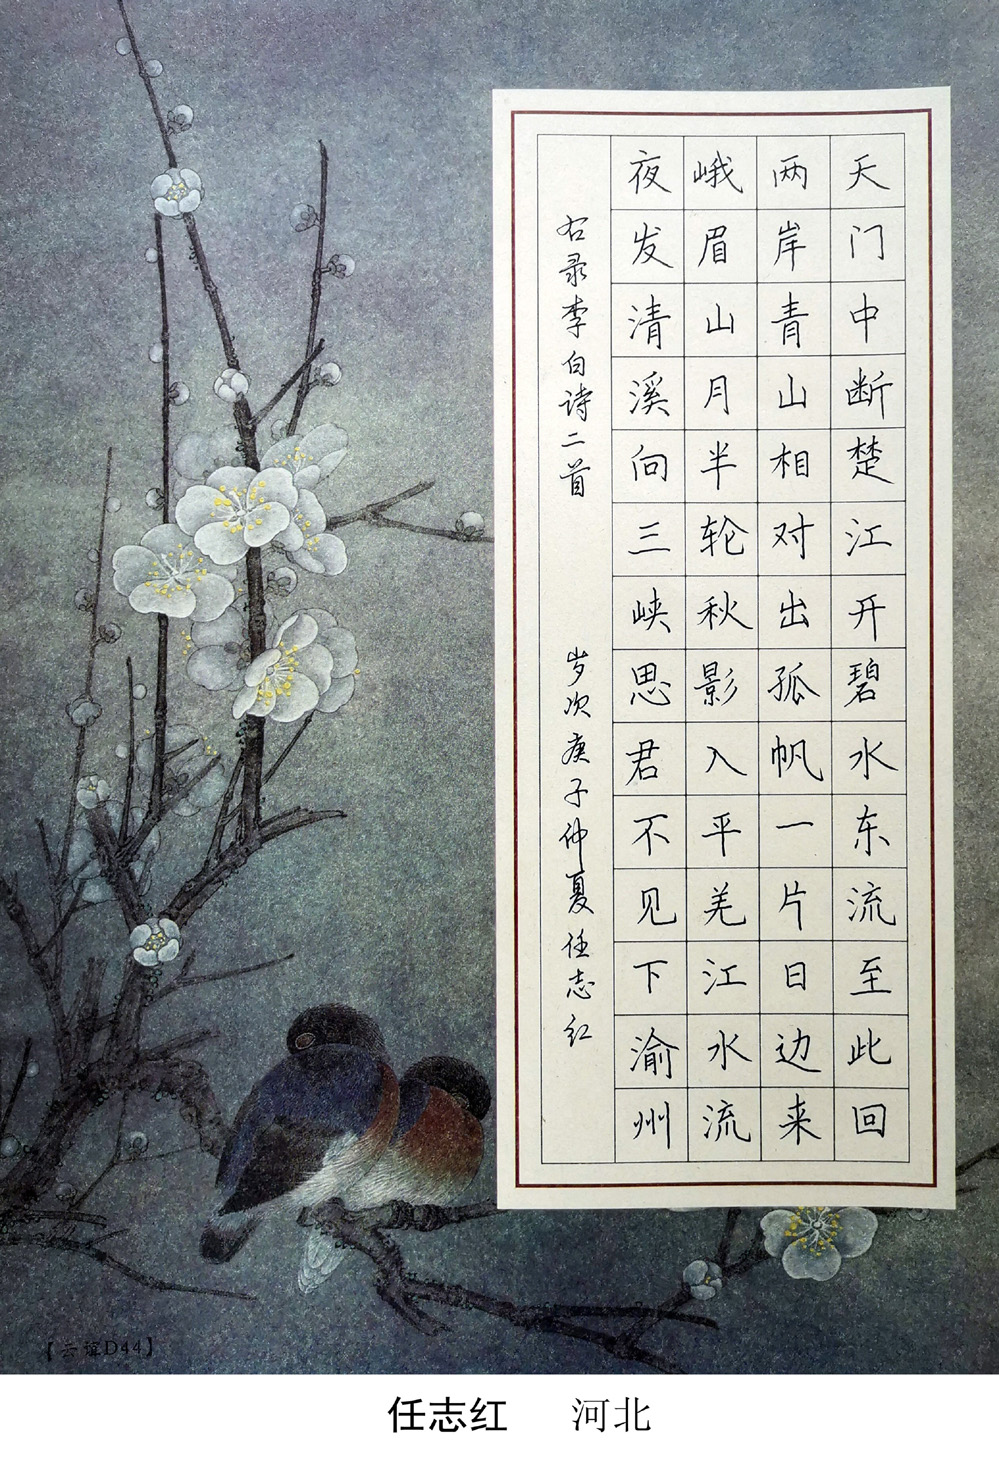 天门中断楚江开碧水东流至此回
两岸青山相对出孤帆一片日边来
峨眉山月半轮秋影入平羌江水流
夜发清溪向三峡思君不见下渝州
右录李白诗二首 岁次庚子仲夏任志红
【云谊D44】
任志红 河北